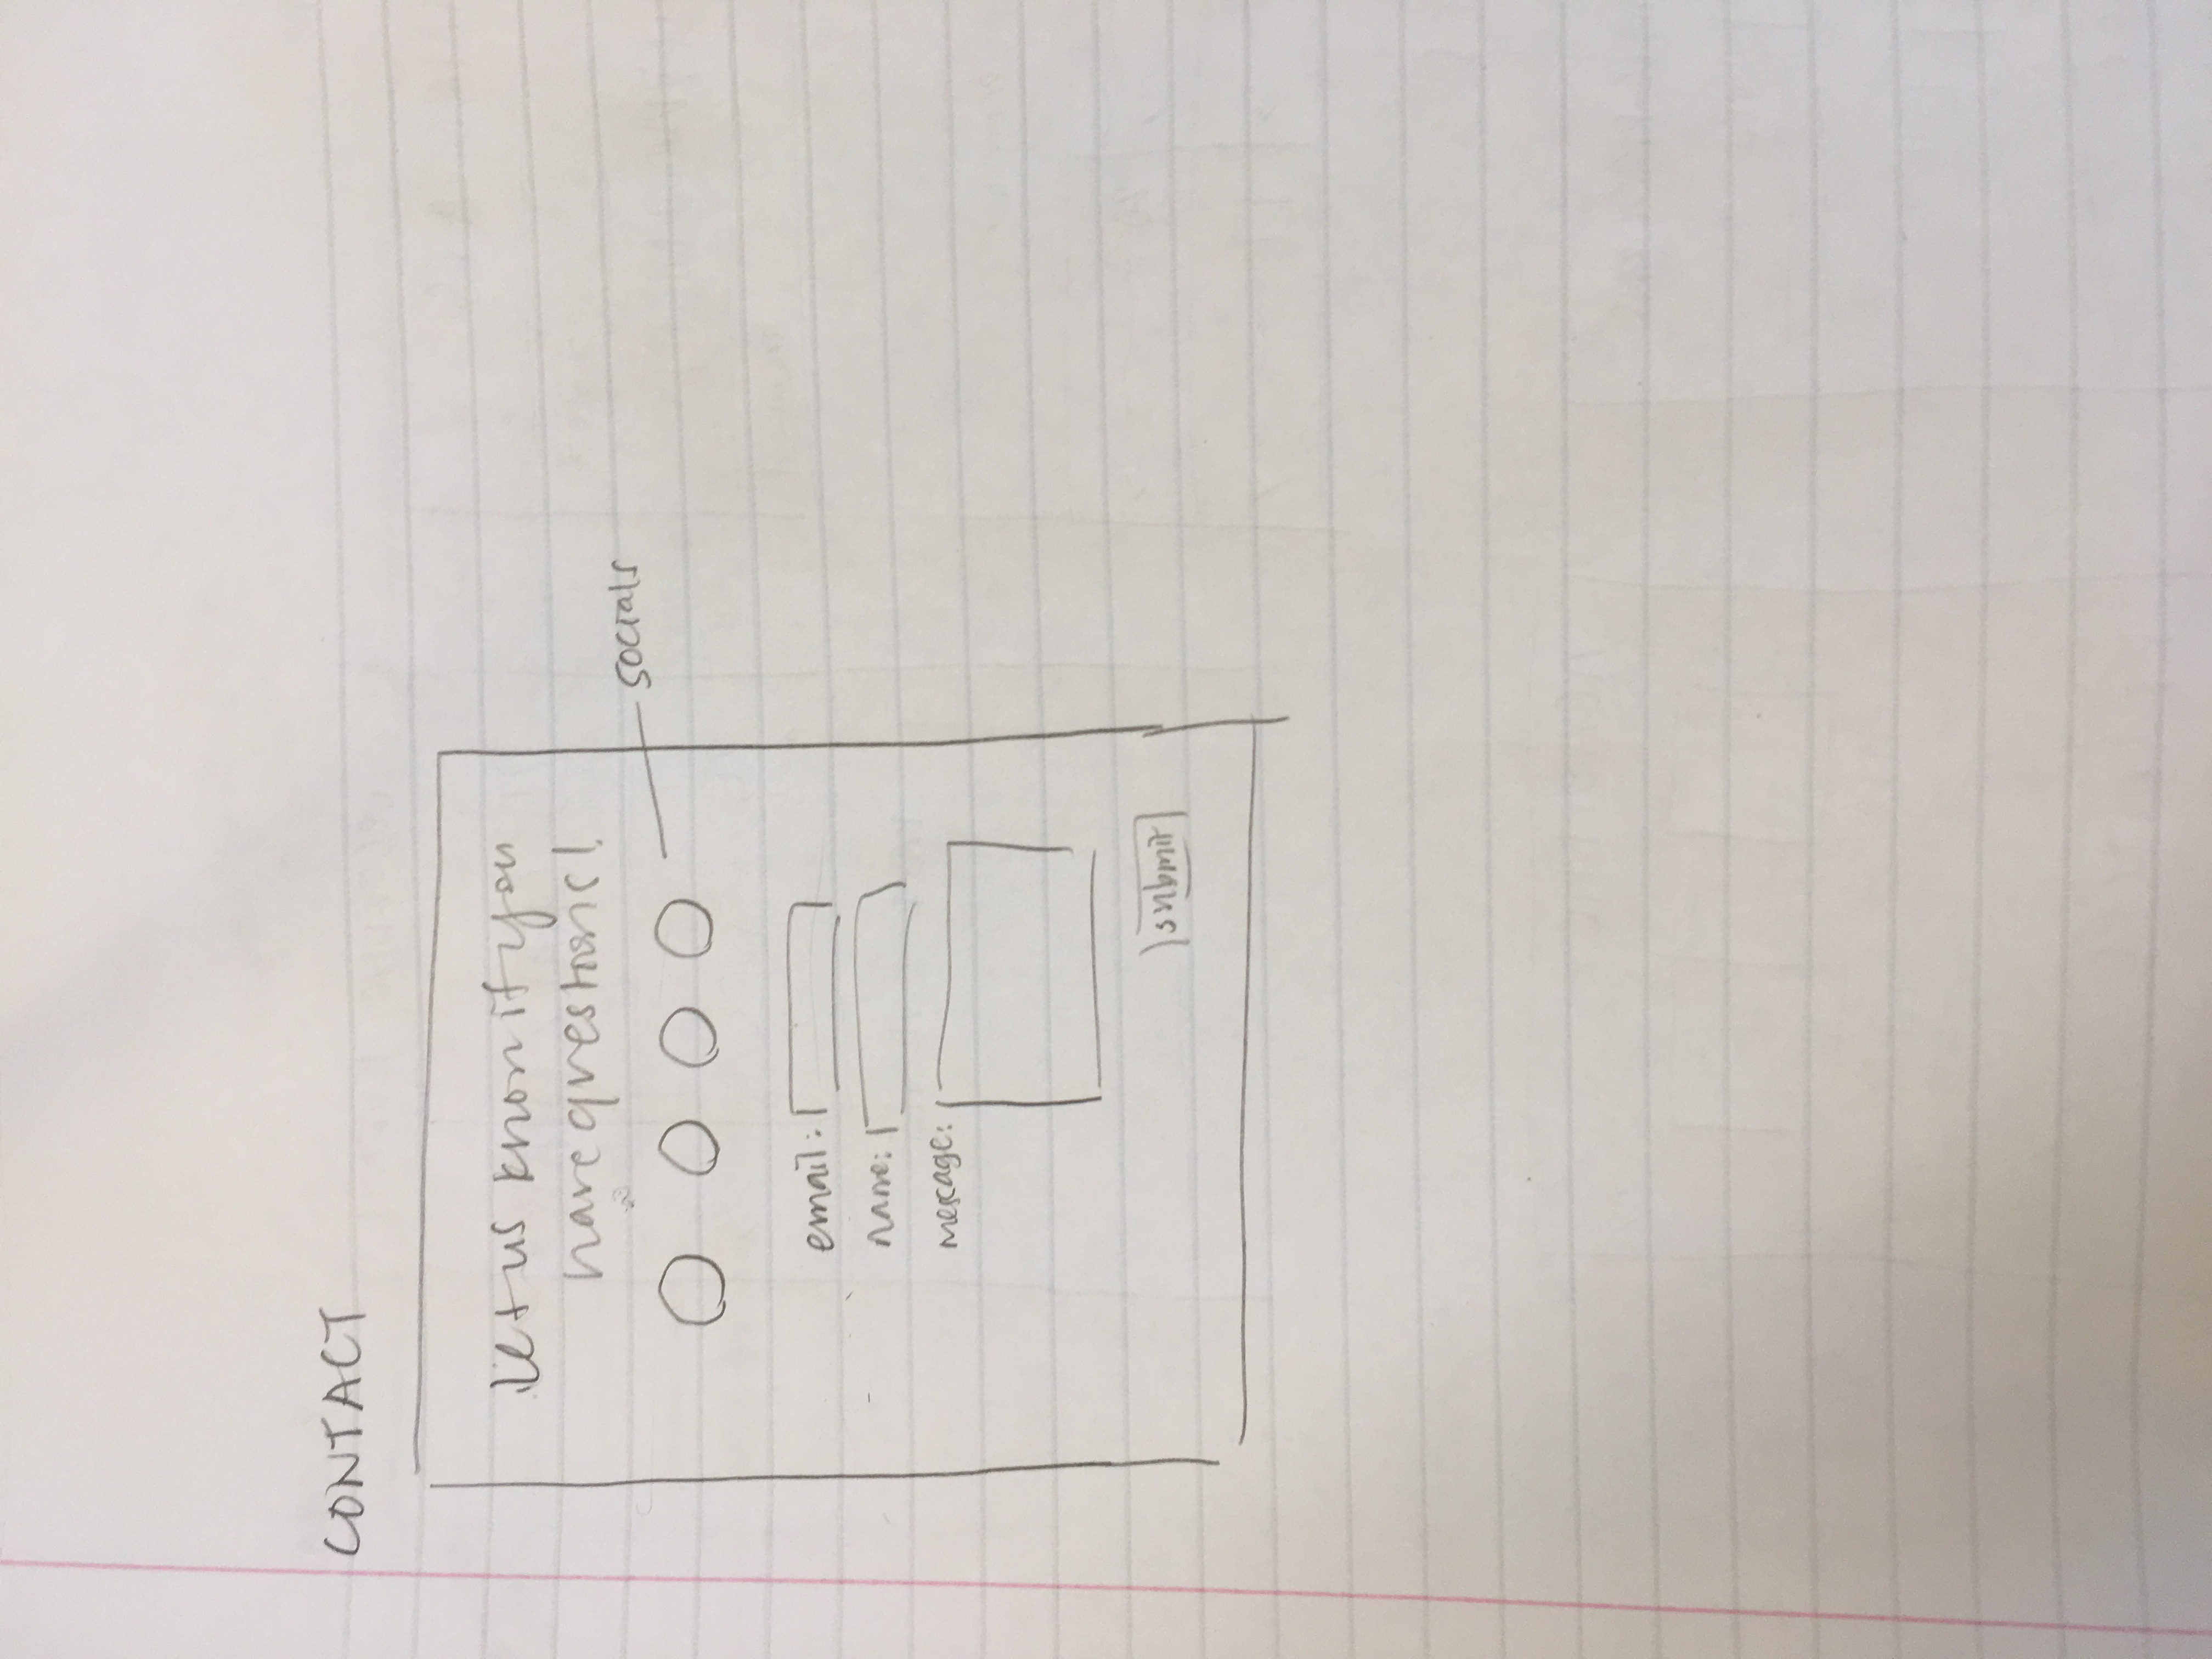 CONTACT
let us know if you
have questions!
socials
email:
name:
message:
submit